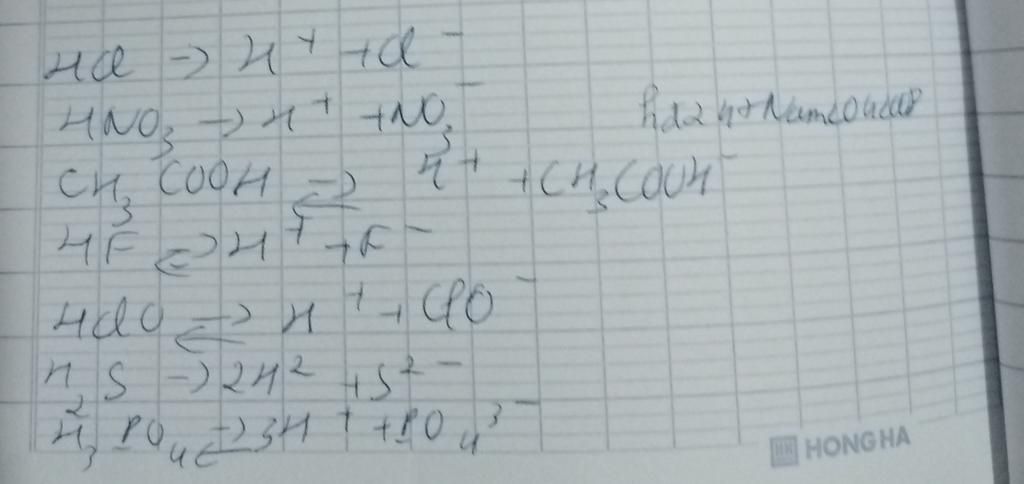 HCl → H⁺ + Cl⁻
HNO₃ → H⁺ + NO₃⁻
CH₃COOH ⇌ H⁺ + CH₃COOH⁻
HF ⇌ H⁺ + F⁻
HClO ⇌ H⁺ + ClO⁻
H₂S → 2H² + S²⁻
H₃PO₄ ⇌ 3H⁺ + PO₄³⁻
HONG HA